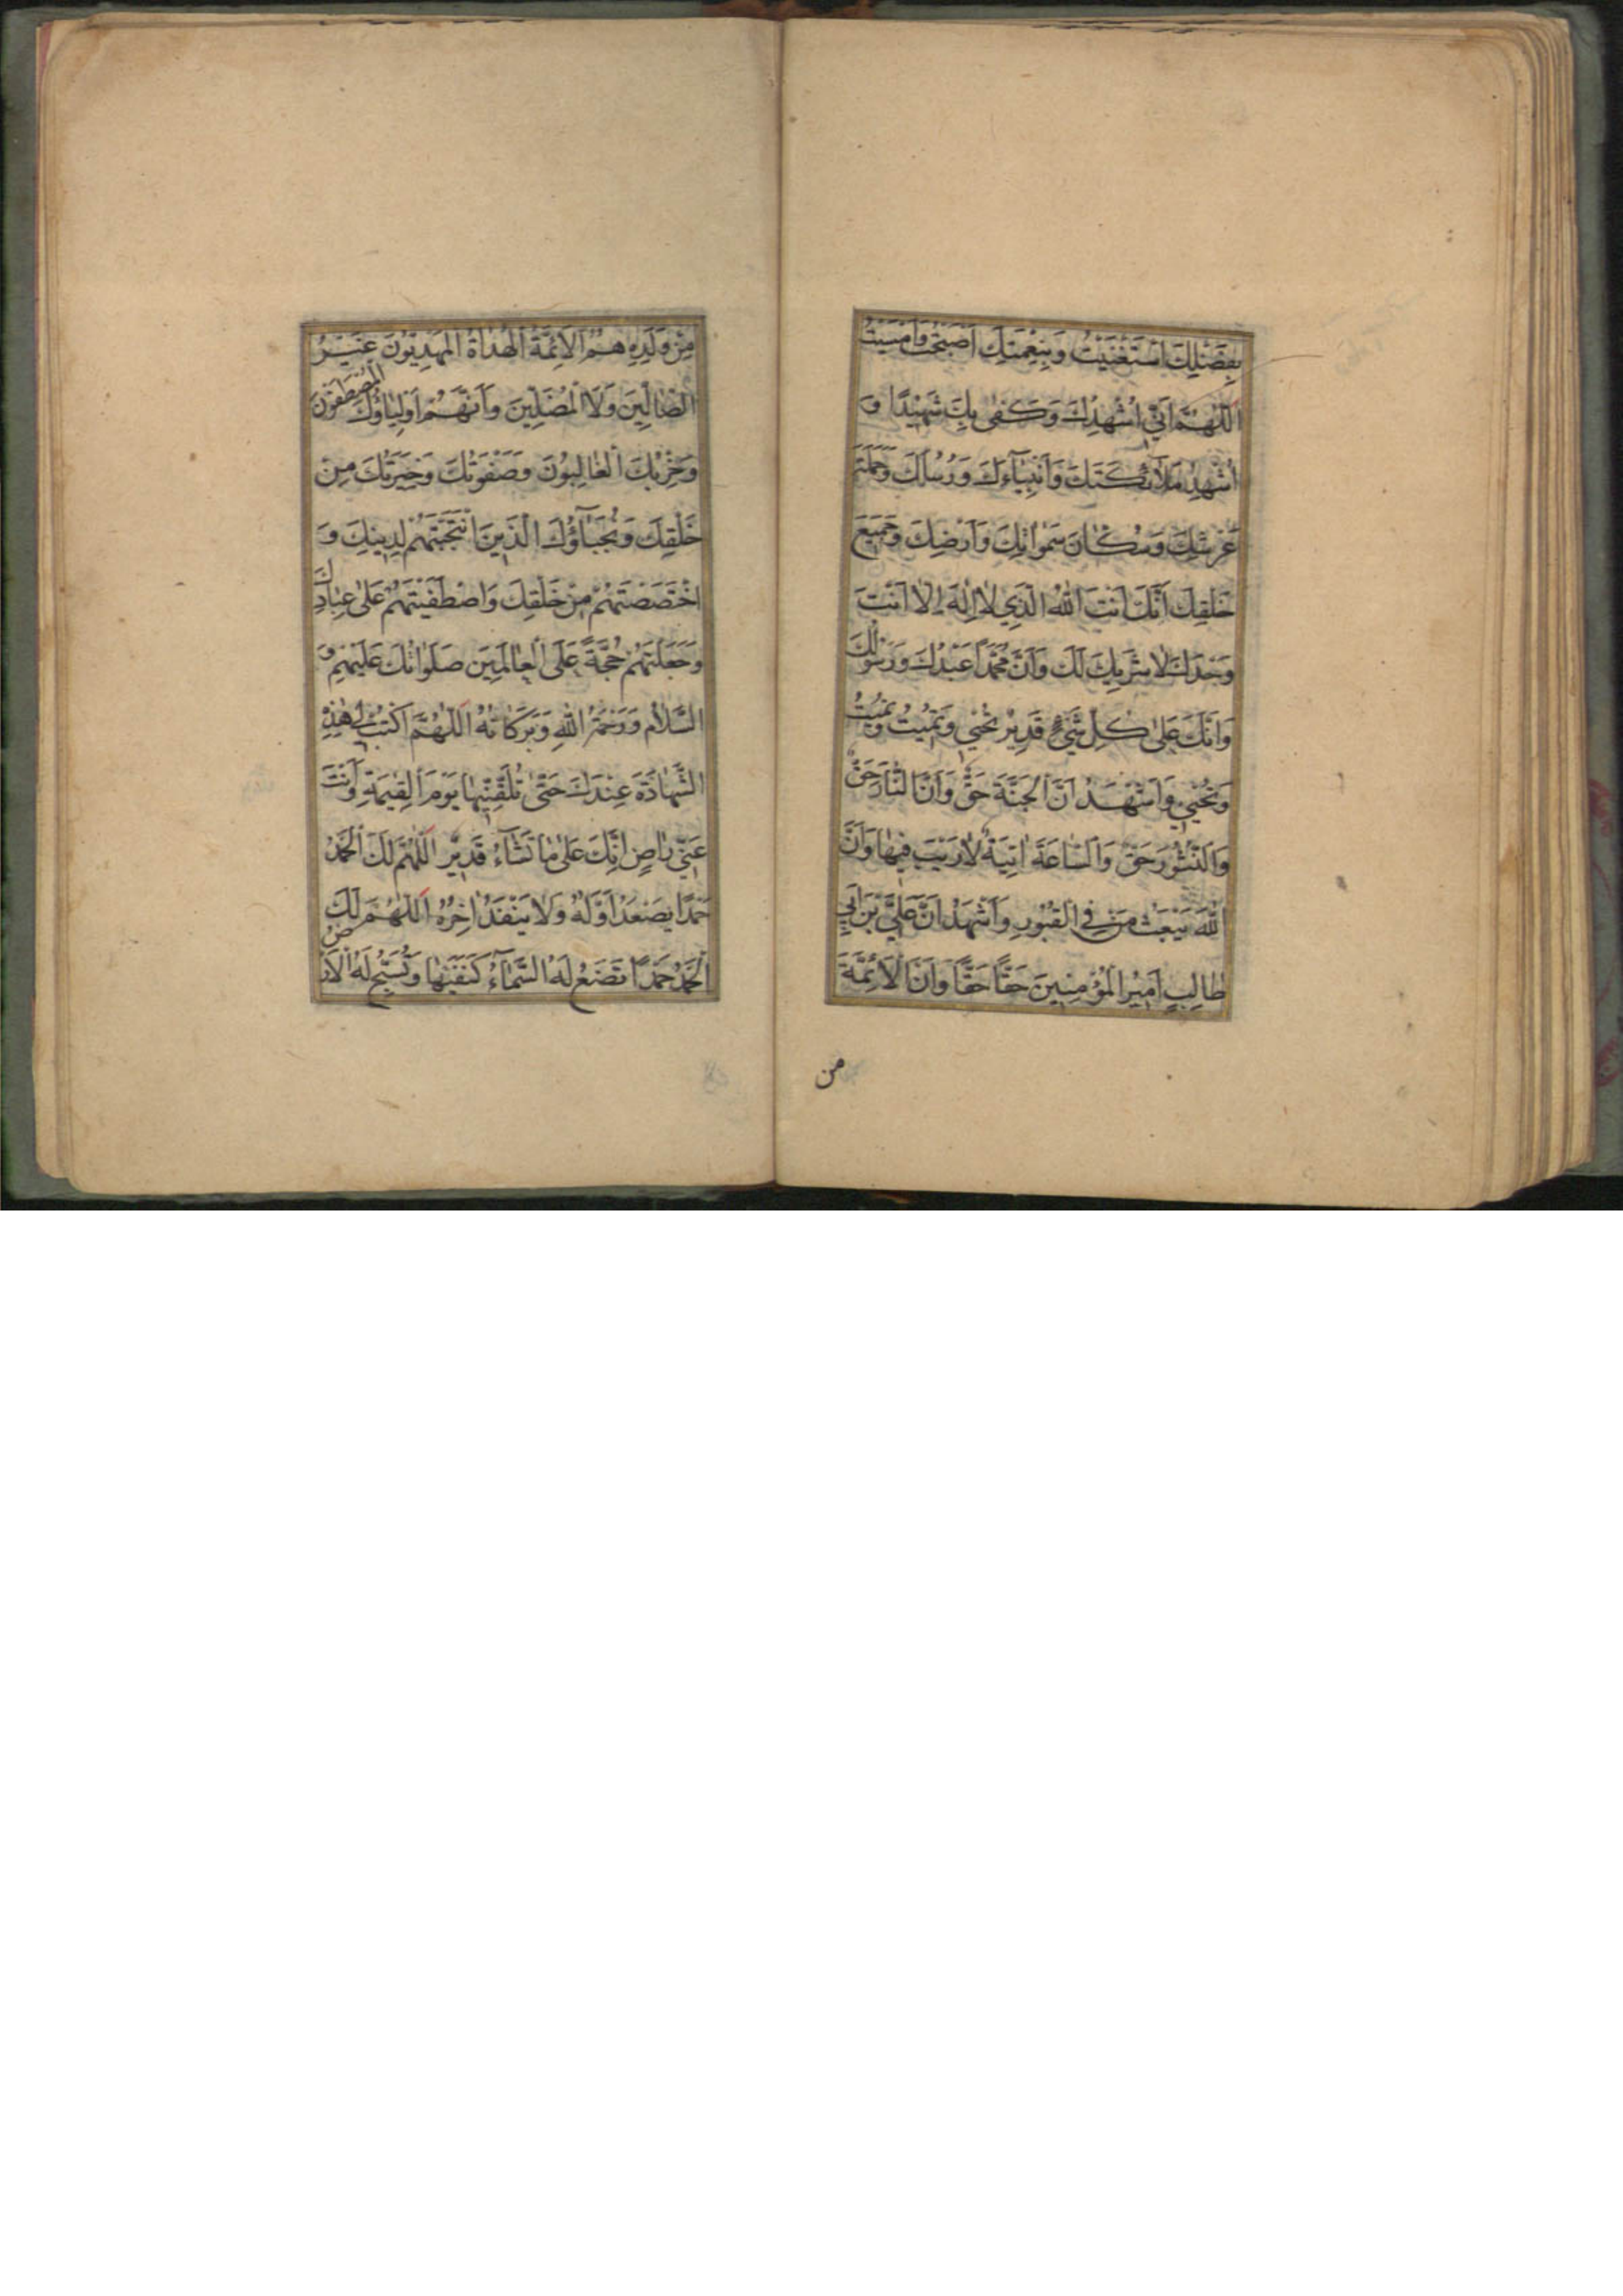 بِفَضْلِكَ اسْتَغْنَيْتُ وَبِنِعْمَتِكَ اَصْبَحْتُ وَاَمْسَيْتُ
اَللّٰهُمَّ اِنّٖي اُشْهِدُكَ وَكَفٰى بِكَ شَهِيْدًا وَ
اُشْهِدُ مَلٰٓائِكَتَكَ وَاَنْبِيَآءَكَ وَرُسُلَكَ وَحَمَلَةَ
عَرْشِكَ وَسُكّٰانَ سَمٰوٰاتِكَ وَاَرْضِكَ وَجَمِيْعَ
خَلْقِكَ اَنَّكَ اَنْتَ اللّٰهُ الَّذِي لٰا اِلٰهَ اِلّٰا اَنْتَ
وَحْدَكَ لٰا شَرِيكَ لَكَ وَاَنَّ مُحَمَّدًا عَبْدُكَ وَرَسُوْلُكَ
وَاَنَّكَ عَلٰى كُلِّ شَيْءٍ قَدِيْرٌ تُحْيٖي وَتُمِيْتُ وَتُمِيْتُ
وَتُحْيٖي وَاَشْهَدُ اَنَّ الْجَنَّةَ حَقٌّ وَاَنَّ النّٰارَ حَقٌّ
وَالنُّشُوْرَ حَقٌّ وَالسّٰاعَةَ اٰتِيَةٌ لٰا رَيْبَ فِيْهٰا وَاَنَّ
اللّٰهَ يَبْعَثُ مَنْ فِي الْقُبُوْرِ وَاَشْهَدُ اَنَّ عَلِيَّ بْنَ اَبِي
طٰالِبٍ اَمِيْرُ الْمُؤْمِنِيْنَ حَقًّا حَقًّا وَاَنَّ الْاَئِمَّةَ
من
مِنْ وَلَدِهِ هُمُ الْاَئِمَّةُ الْهُدٰاةُ الْمَهْدِيُّوْنَ غَيْرُ
الضّٰالِّيْنَ وَلَا الْمُضِلِّيْنَ وَاَنَّهُمْ اَوْلِيٰاؤُكَ الْمُصْطَفَوْنَ
وَحِزْبُكَ الْغٰالِبُوْنَ وَصَفْوَتُكَ وَخِيَرَتُكَ مِنْ
خَلْقِكَ وَنُجَبٰٓاؤُكَ الَّذِيْنَ انْتَجَبْتَهُمْ لِدِيْنِكَ وَ
اخْتَصَصْتَهُمْ مِنْ خَلْقِكَ وَاصْطَفَيْتَهُمْ عَلٰى عِبٰادِكَ
وَجَعَلْتَهُمْ حُجَّةً عَلَى الْعٰالَمِيْنَ صَلَوٰاتُكَ عَلَيْهِمْ وَ
السَّلٰامُ وَرَحْمَةُ اللّٰهِ وَبَرَكٰاتُهُ اَللّٰهُمَّ اكْتُبْ لِي هٰذِهِ
الشَّهٰادَةَ عِنْدَكَ حَتّٰى تُلَقِّنَنِيْهٰا يَوْمَ الْقِيٰمَةِ وَاَنْتَ
عَنّٖي رٰاضٍ اِنَّكَ عَلٰى مٰا تَشٰٓاءُ قَدِيْرٌ اَللّٰهُمَّ لَكَ الْحَمْدُ
حَمْدًا يَصْعَدُ اَوَّلُهُ وَلَا يَنْفَدُ اٰخِرُهُ اَللّٰهُمَّ لَكَ
الْحَمْدُ حَمْدًا تَضَعُ لَهُ السَّمٰٓاءُ كَنَفَيْهٰا وَتُسَبِّحُ لَهُ الْاَرْضُ